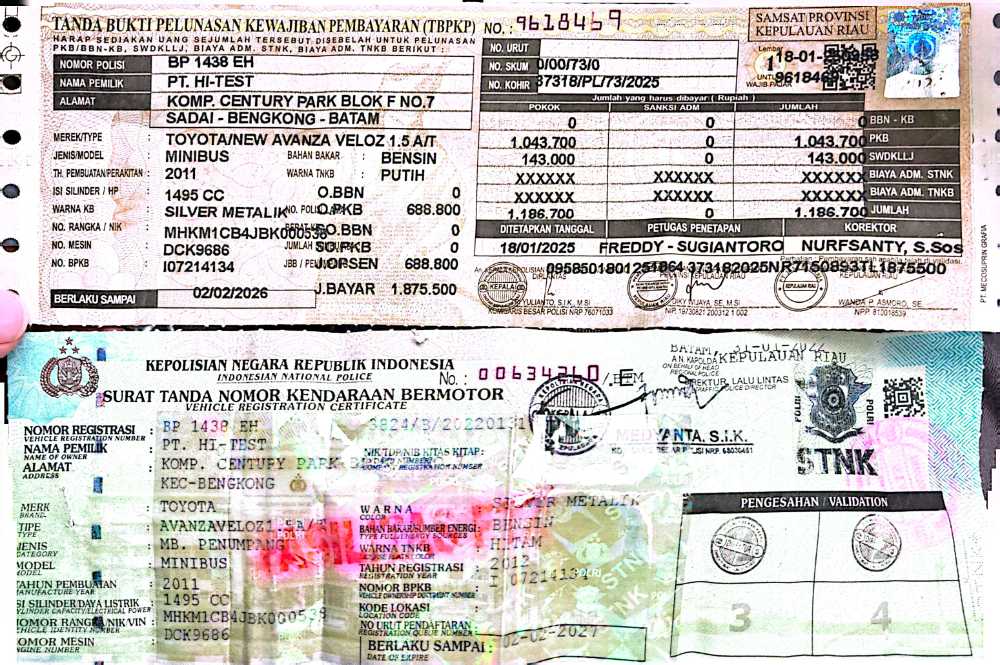 TANDA BUKTI PELUNASAN KEWAJIBAN PEMBAYARAN (TBPKP) NO.: 9618469
HARAP SEDIAKAN UANG SEJUMLAH TERSEBUT DISEBELAH UNTUK PELUNASAN
PKB/BBN-KB, SWDKLLJ, BIAYA ADM. STNK, BIAYA ADM. TNKB BERIKUT :
SAMSAT PROVINSI
KEPULAUAN RIAU
NOMOR POLISI : BP 1438 EH
NAMA PEMILIK : PT. HI-TEST
ALAMAT : KOMP. CENTURY PARK BLOK F NO,7
SADAI - BENGKONG - BATAM
MEREK/TYPE : TOYOTA/NEW AVANZA VELOZ 1.5 A/T
JENIS/MODEL : MINIBUS BAHAN BAKAR : BENSIN
TH. PEMBUATAN/PERAKITAN : 2011 WARNA TNKB : PUTIH
ISI SILINDER / HP : 1495 CC O.BBN 0
WARNA KB : SILVER METALIK NO. POLISI O.PKB 688.800
NO. RANGKA / NIK : MHKM1CB4JBK000538 O.BBN 0
NO. MESIN : DCK9686 JUMLAH SO.PKB 0
NO. BPKB : I07214134 JBB / O.OPSEN 688.800
BERLAKU SAMPAI : 02/02/2026 J.BAYAR 1.875.500
NO. URUT
NO. SKUM 0/00/73/0
NO. KOHIR 37318/PL/73/2025
Lembar 1 18-01-
UNTUK 9618469
WAJIB PAJAK
Jumlah yang harus dibayar ( Rupiah )
POKOK SANKSI ADM JUMLAH
0 0 0 BBN - KB
1.043.700 0 1.043.700 PKB
143.000 0 143.000 SWDKLLJ
XXXXXX XXXXXX XXXXXX BIAYA ADM. STNK
XXXXXX XXXXXX XXXXXX BIAYA ADM. TNKB
1.186.700 0 1.186.700 JUMLAH
DITETAPKAN TANGGAL PETUGAS PENETAPAN KOREKTOR
18/01/2025 FREDDY - SUGIANTORO NURFSANTY, S.Sos
0958501801251864 373182025NR7150893TL1875500
DIRLANTAS
KEPULAUAN RIAU
YULIANTO, S.I.K, M.SI
KOMBARIS BESAR POLISI NRP 76071033
DIKY WIJAYA, SE, M.SI
NIP. 19730821 200312 1 002
WANDA P. ASMORO, SE
NPP. 810018539
PT. MECOSUPRIN GRAFIA
KEPOLISIAN NEGARA REPUBLIK INDONESIA
INDONESIAN NATIONAL POLICE
No. : 00634260 E
SURAT TANDA NOMOR KENDARAAN BERMOTOR
VEHICLE REGISTRATION CERTIFICATE
BATAM, 31-01-2022
A.N. KAPOLDA KEPULAUAN RIAU
ON BEHALF OF HEAD
REGIONAL POLICE
DIREKTUR, LALU LINTAS
TRAFFIC POLICE DIRECTOR
MEDYANTA, S.I.K.
POLRI
STNK
NOMOR REGISTRASI : BP 1438 EH 3824/B/20220131
VEHICLE REGISTRATION NUMBER
NAMA PEMILIK : PT. HI-TEST
NAME OF OWNER
NIK/TDP/NIB/KITAS/KITAP:
ALAMAT : KOMP. CENTURY PARK
ADDRESS
KEC-BENGKONG
MERK : TOYOTA
BRAND
WARNA : SILVER METALIK
COLOR
TIPE : AVANZAVELOZ1.5A/T
TYPE
BAHAN BAKAR/SUMBER ENERGI : BENSIN
TYPE FUEL/ENERGY SOURCES
JENIS : MB. PENUMPANG
CATEGORY
WARNA TNKB : HITAM
MODEL : MINIBUS
MODEL
TAHUN REGISTRASI : 2012
REGISTRATION YEAR
TAHUN PEMBUATAN : 2011
MANUFACTURE YEAR
NOMOR BPKB : I 07214134
VEHICLE OWNERSHIP DOCUMENT NUMBER
ISI SILINDER/DAYA LISTRIK : 1495 CC
CYLINDER CAPACITY/ELECTRICAL POWER
KODE LOKASI :
LOCATION CODE
NOMOR RANGKA/NIK/VIN : MHKM1CB4JBK000538
VEHICLE IDENTITY NUMBER
NO URUT PENDAFTARAN :
REGISTRATION QUEUE NUMBER
NOMOR MESIN : DCK9686
ENGINE NUMBER
BERLAKU SAMPAI : 02-02-2027
DATE OF EXPIRE
PENGESAHAN / VALIDATION
3 4